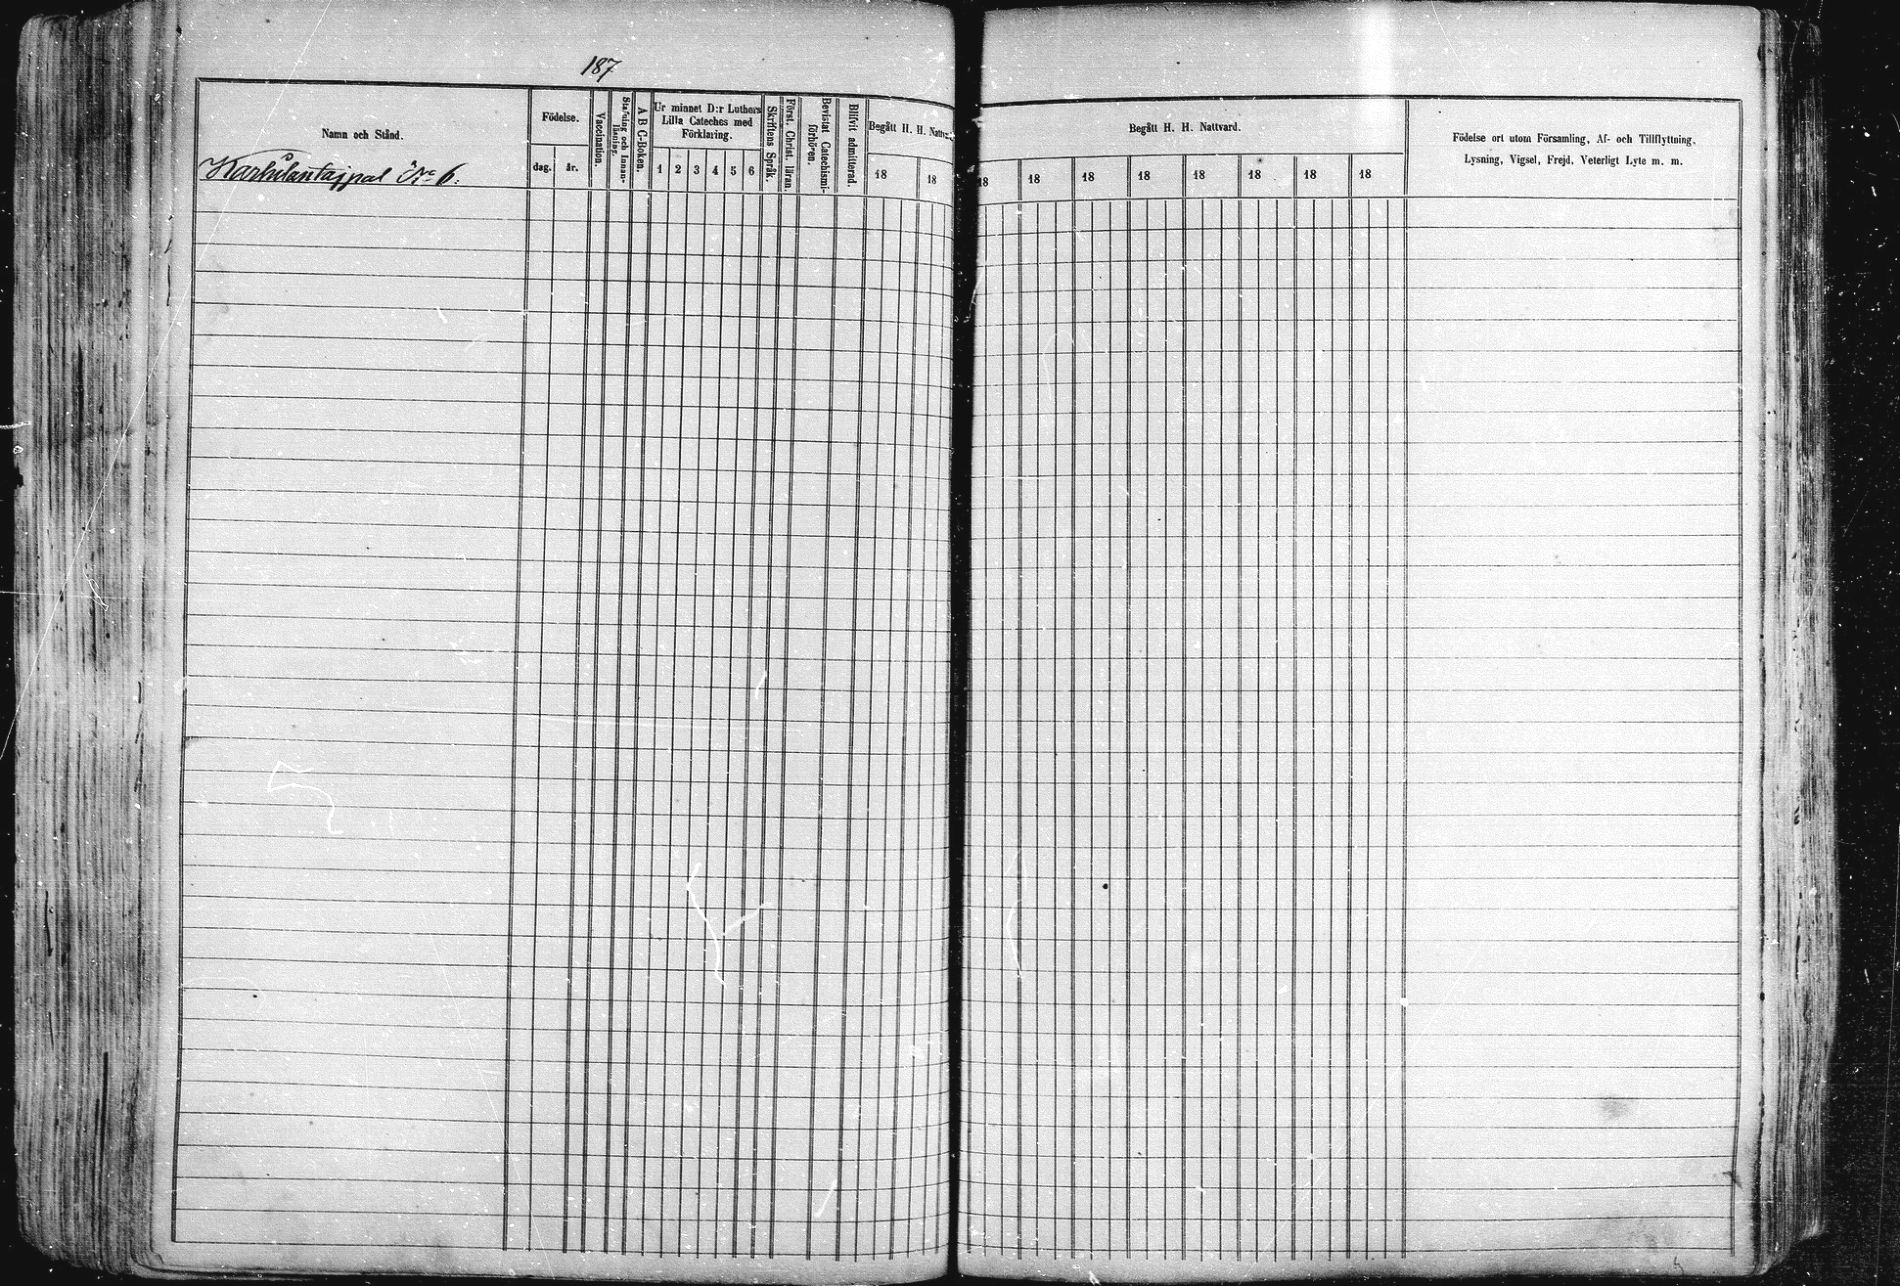 187
Namn och Stånd.
Födelse.
dag. år.
Vaccination.
Stafning och Innan-
läsning.
A B C-Boken.
Ur minnet D:r Luthers
Lilla Cateches med
Förklaring.
1 2 3 4 5 6
Skriftens Språk.
Först. Christ. läran.
Bevistat Catechismi-
förhören.
Blifvit admitterad.
Begått H. H. Nattv
18 18
N:o 6.
Begått H. H. Nattvard.
18 18 18 18 18 18 18 18
Födelse ort utom Församling, Af- och Tillflyttning,
Lysning, Vigsel, Frejd, Veterligt Lyte m. m.